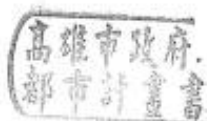 高雄市政府.
都市計畫書